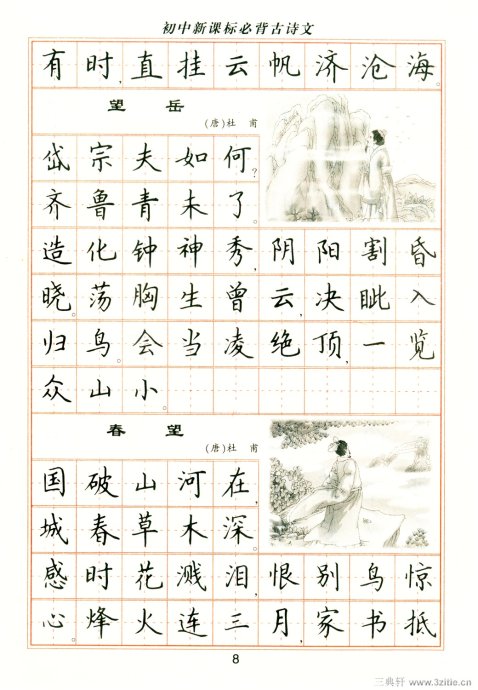 初中新课标必背古诗文
有时,直挂云帆济沧海。
望岳
(唐)杜甫
岱宗夫如何?
齐鲁青未了。
造化钟神秀,阴阳割昏
晓。荡胸生曾云,决眦入
归鸟。会当凌绝顶,一览
众山小。
春望
(唐)杜甫
国破山河在,
城春草木深。
感时花溅泪,恨别鸟惊
心。烽火连三月,家书抵
8
三典轩 www.3zitie.cn